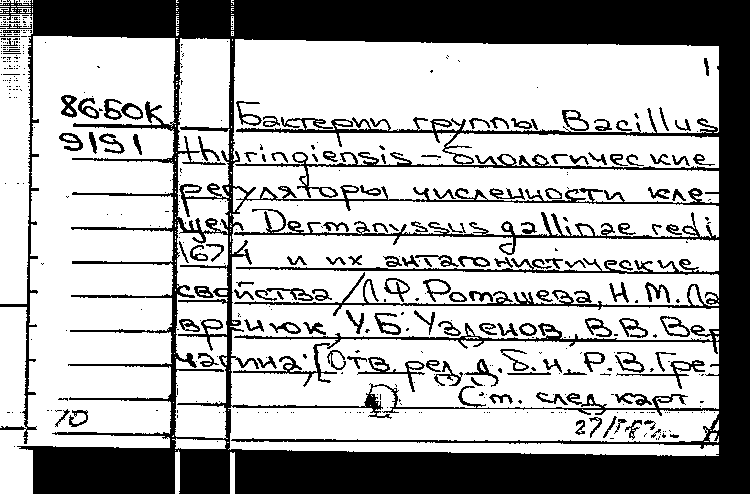 86-50К Бактерии группы Bacillus
9191 thuringiensis – биологические
регуляторы численности кле-
щей Dermanyssus gallinae redi
1674 и их антагонистические
свойства / Л.Ф. Ромашева, Н.М. Ла
вренюк, У.Б. Узденов, В.В. Вер
чагина; [Отв. ред. д.б.н. Р.В. Гре-
См. след. карт.
10